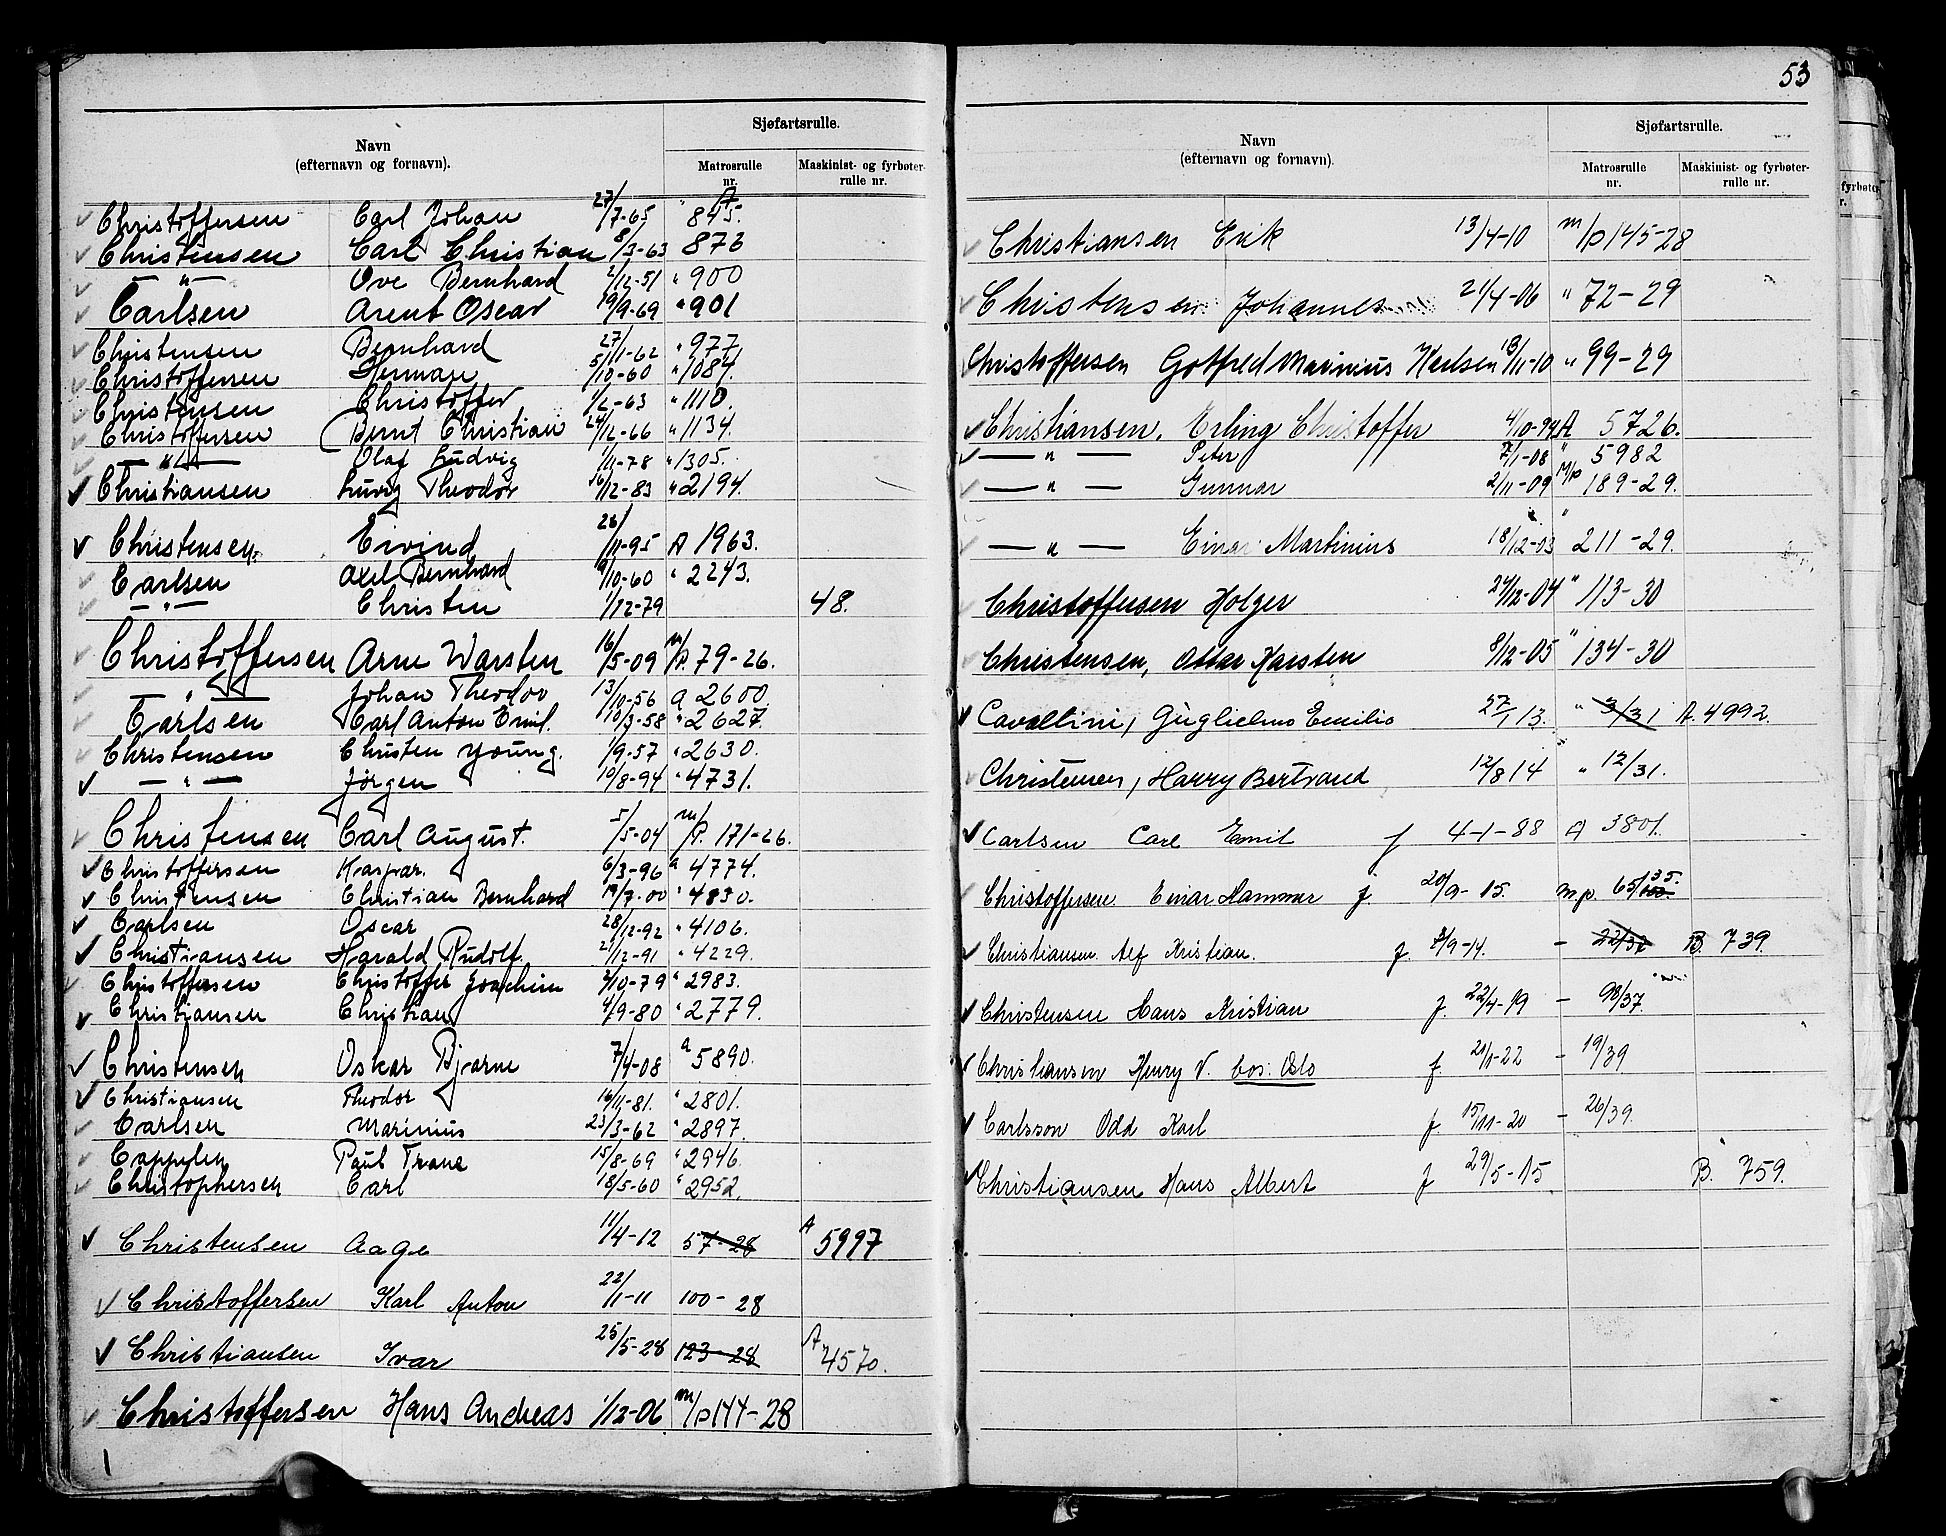 53
Navn
(efternavn og fornavn).
Sjøfartsrulle.
Matrosrulle nr.
Maskinist- og fyrbøter-rulle nr.
Christoffersen Carl Johan 27/7-65 A 845.
Christensen Carl Christian 8/3-63 873
— " — Ove Bernhard 2/12-51 " 900
Carlsen Arent Oscar 19/9-69 " 901
Christensen Bernhard 27/11-62 " 977
Christoffersen Herman 5/10-60 " 1084.
Christensen Christoffer 1/2-63 " 1110.
Christoffersen Bernt Christian 24/12-66 " 1134.
— " — Olaf Ludvig 1/11-78 " 1305.
Christiansen Luvig Theodor 16/12-83 " 2194.
Christensen. Eivind 26/11-95 A 1963.
Carlsen Axel Bernhard 9/10-60 " 2243.
— " — Christen 1/12-79 48.
Christoffersen Arne Warsten 16/5-09 m/p. 79-26.
— " — Johan Theodor 13/10-56 a 2600
Carlsen Carl Anton Emil. 10/3-58 " 2627.
Christensen Christen Young. 1/9-57 " 2630.
— " — Jørgen 10/8-94 " 4731.
Christensen Carl August. 5/5-04 m/p. 171-26.
Christoffersen Kaspar. 6/3-96 a 4774.
Christensen Christian Bernhard 19/7-00 " 4830.
Carlsen Oscar 28/12-92 " 4106.
Christiansen Harald Rudolf. 21/12-91 " 4229.
Christoffersen Christoffer Joachim 2/10-79 " 2983.
Christiansen Christian 4/9-80 " 2779.
Christensen Oskar Bjarne 7/4-08 a 5890.
Christiansen Theodor 16/11-81. " 2801.
Carlsen Marinius 23/3-62 " 2897.
Cappelen Paul Trane 15/8-69 " 2946.
Christophersen Carl 18/5-60 " 2952.
Christensen Aage 11/4-12 57-28 A 5997
Christoffersen Karl Anton 22/11-11 100-28
Christiansen Ivar 25/5-28 123-28 A 4570.
Christoffersen Hans Andreas 1/12-06 m/p 144-28
1
Navn
(efternavn og fornavn).
Sjøfartsrulle.
Matrosrulle nr.
Maskinist- og fyrbøter-rulle nr.
Christiansen Erik 13/4-10 m/p 145-28
Christensen Johannes 21/4-06 " 72-29
Christoffersen Gotfred Marinius Karlsen 13/11-10 " 99-29
Christiansen. Erling Christoffer 4/10-94 A 5726.
— " — Peter 7/1-08 " 5982
— " — Gunnar 2/11-09 M/p 189-29.
— " — Einar Martinius 18/12-03 " 211-29.
Christoffersen Holger 24/12-04 " 113-30
Christensen, Ottar Karsten 8/12-05 " 134-30
Cavaltini, Guglielmo Emilio 27/1 13. " 3/31 A. 4992.
Christensen, Harry Bertrand 12/8 14 " 12/31.
Carlsen Carl Emil f 4-1-88 A 3801.
Christoffersen Einar Hammer f. 20/9-15. m.p. 65/35.
Christiansen Alf Kristian. f. 3/9-14. — 22/32 B. 739.
Christensen Hans Kristian f. 22/4-19 — 98/37.
Christiansen Henry V. bos. Oslo f. 21/1-22 — 19/39
Carlsson Odd Karl f 15/11-20 — 26/39.
Christiansen Hans Albert f 29/5-15. B. 759.
fyrbøter
r.